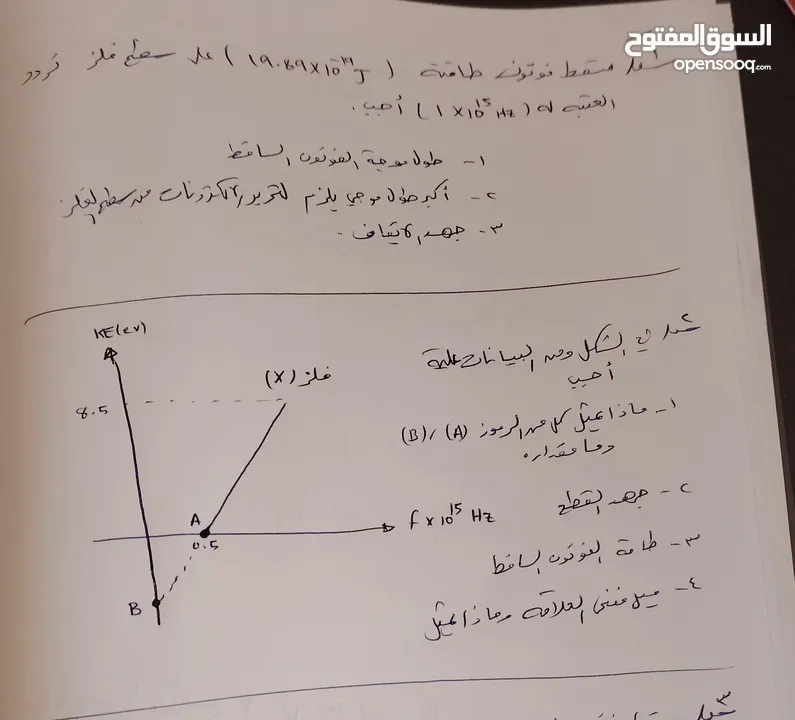 السوق المفتوح
opensooq.com
سقط فوتون طاقته (19.89x10⁻¹⁹J) على سطح فلز تردد
العتبة له (1x10¹⁵Hz) أجب.
١- طول موجة الفوتون الساقط
٢- أكبر طول موجي يلزم لتحرير الكترونات من سطح الفلز
٣- جهد الايقاف.
في الشكل ومن البيانات عليه
أجب
١- ماذا يمثل كل من الرموز (A)،(B)
وما مقداره
٢- جهد القطع
٣- طاقة الفوتون الساقط
٤- ميل منحنى العلاقة وماذا يمثل
KE(ev)
فلز (X)
8.5
A
0.5
f x10¹⁵ Hz
B